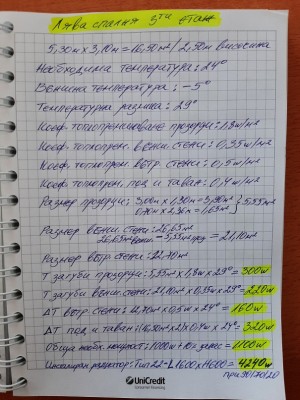 Лява спалня 3ти етаж
5,30м х 3,10м = 16,50м² / 2,50м височина
Необходима температура: 24°
Външна температура: -5°
Температурна разлика: 29°
Коеф. топлопреминаване прозорци: 1,8w/м²
Коеф. топлопрем. външ. стени: 0,35w/м²
Коеф. топлопрем. вътр. стени: 0,5w/м²
Коеф. топлопрем. под и таван: 0,4w/м²
Размер прозорци: 3,00м х 1,30м = 3,90м²
= 1,65м² } 5,55м²
Размер външ. стени: 26,65м²
26,65м² - 5,55м² = 21,10м²
Размер вътр. стени:
Т загуби прозорци: 5,55м² х 1,8w х 29° = 300w
Т загуби външ. стени: 21,10м² х 0,35w х 29° = 220w
ΔТ вътр. стени: х 0,5w х = 160w
ΔТ под и таван: = 320w
Обща необх. мощност: 1000w + 10% запас = 1100w
радиатор: Тип 22 - L1600xH600 = 4240w
при 90/70/20
UniCredit